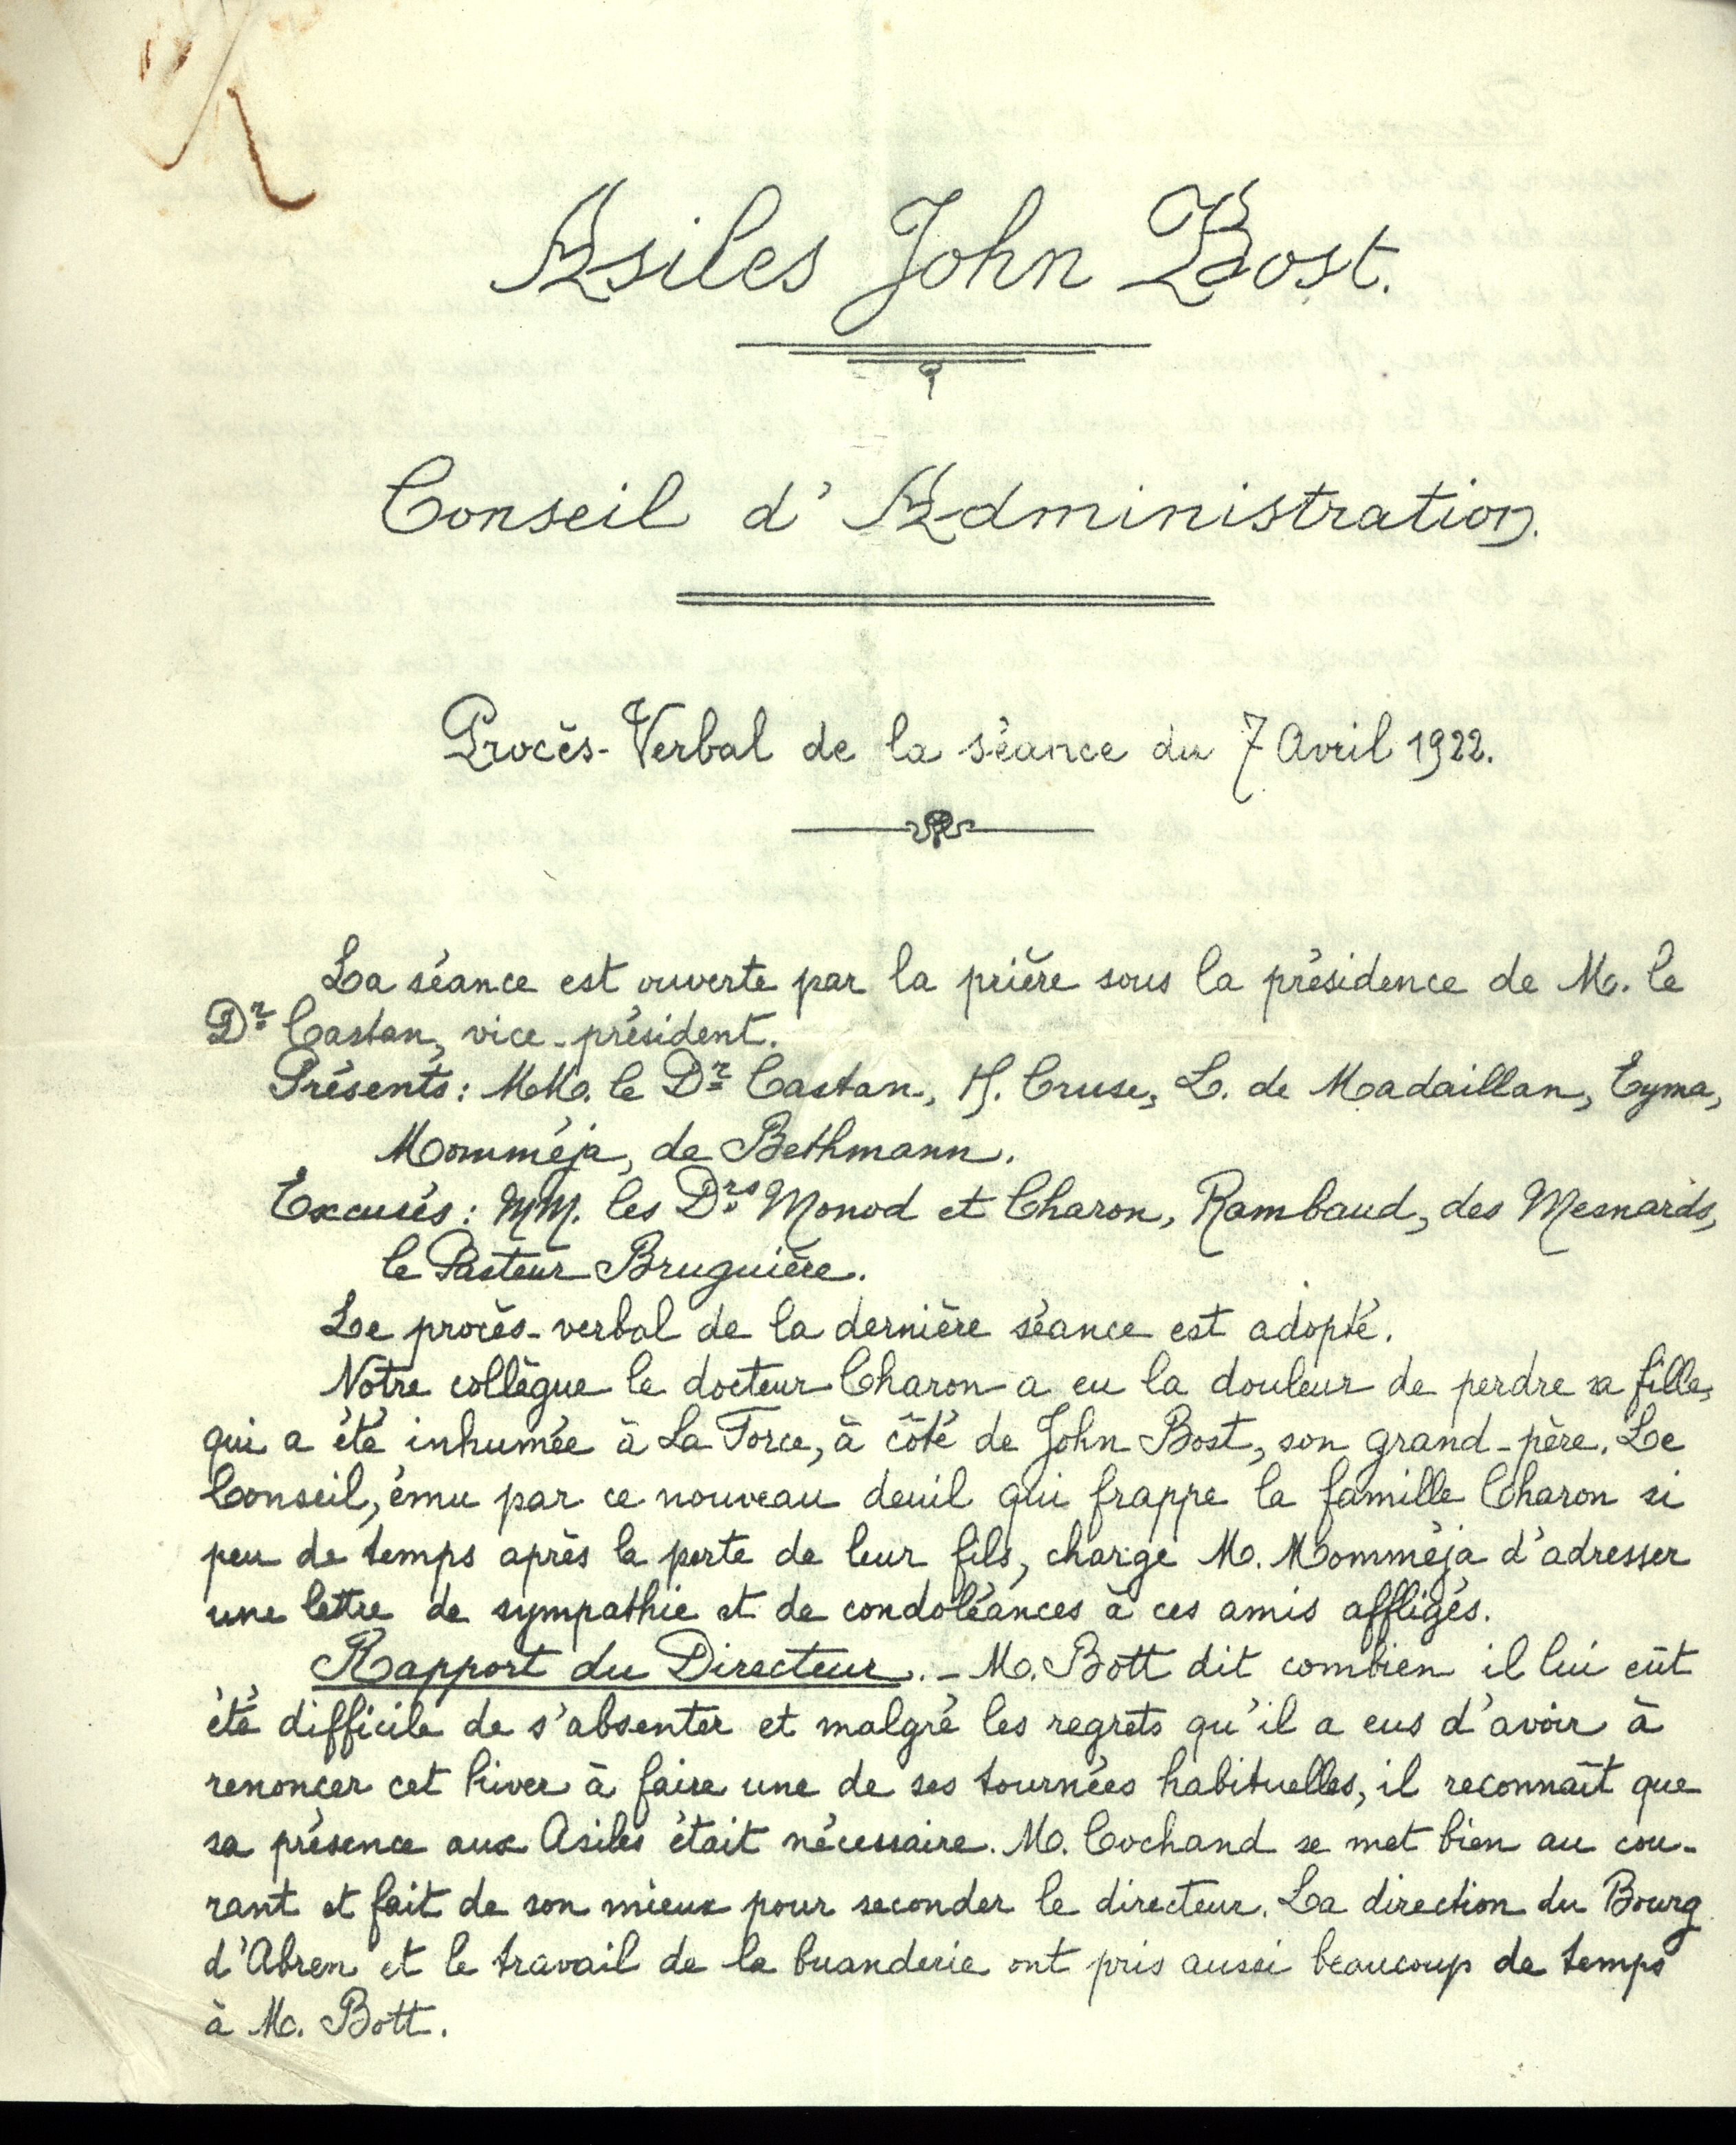 Asiles John Bost.
Conseil d'Administration.
Procès-Verbal de la séance du 7 Avril 1922.
La séance est ouverte par la prière sous la présidence de M. le
Dr Castan, vice-président.
Présents: MM. le Dr Castan, H. Cruse, L. de Madaillan, Eyma,
Momméja, de Bethmann.
Excusés: MM. les Drs Monod et Charon, Rambaud, des Mesnards,
le Pasteur Bruguière.
Le procès-verbal de la dernière séance est adopté.
Notre collègue le docteur Charon a eu la douleur de perdre sa fille,
qui a été inhumée à La Force, à côté de John Bost, son grand-père. Le
Conseil, ému par ce nouveau deuil qui frappe la famille Charon si
peu de temps après la perte de leur fils, charge M. Momméja d'adresser
une lettre de sympathie et de condoléances à ces amis affligés.
Rapport du Directeur. - M. Bott dit combien il lui eût
été difficile de s'absenter et malgré les regrets qu'il a eus d'avoir à
renoncer cet hiver à faire une de ses tournées habituelles, il reconnaît que
sa présence aux Asiles était nécessaire. M. Cochand se met bien au cou-
rant et fait de son mieux pour seconder le directeur. La direction du Bourg
d'Abren et le travail de la buanderie ont pris aussi beaucoup de temps
à M. Bott.